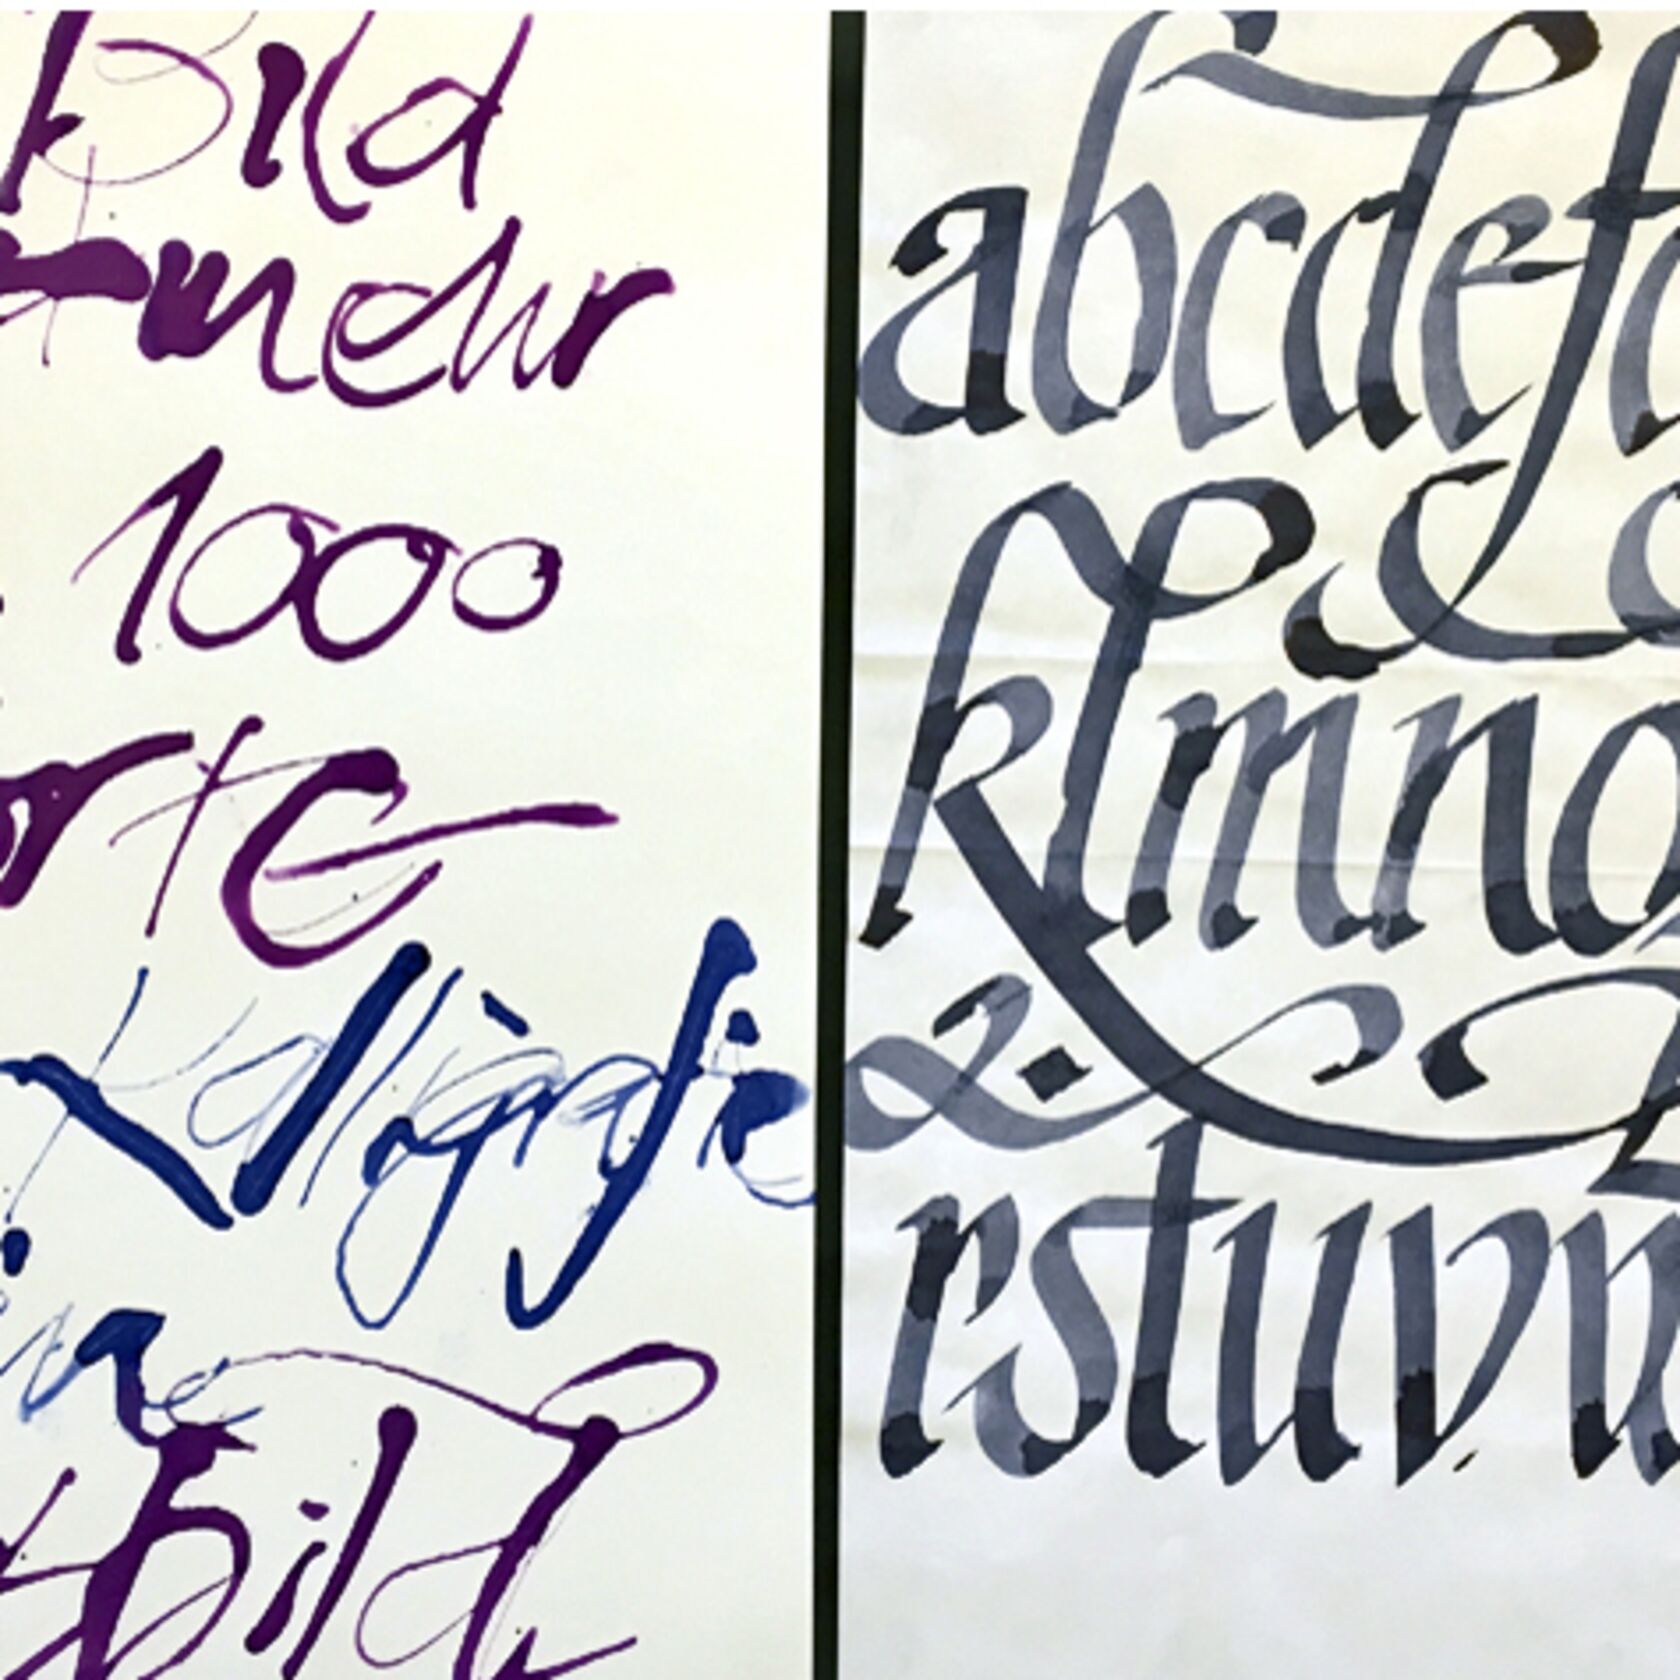 Bild
mehr
1000
orte
Kalligrafie
Bild
abcdef
klmno
rstuv